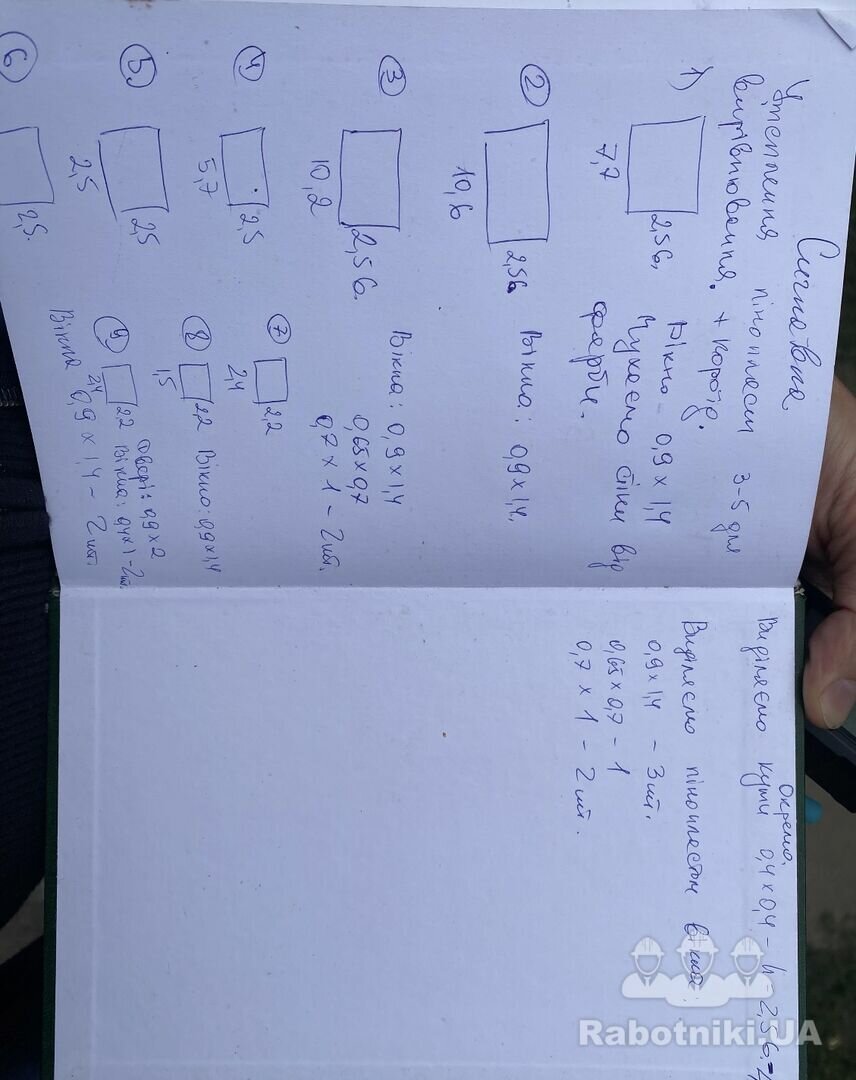 Утеплення пінопласт 3-5 для
вирівнювання. + короїд.
1)
7,7
2,56.
Вікно - 0,9 х 1,4
Чухаємо стіни від
фарби.
2
10,6
2,56
Вікна: 0,9х1,4.
3
10,2
2,56.
Вікна: 0,9х1,4
0,65х0,7
0,7 х 1 - 2шт.
4
5,7
2,5
5
2,5
2,5
6
2,5.
7
2,4
2,2
8
1,5
2,2 Вікно: 0,9х1,4
9
2,4
2,2
двері: 0,9х2
Вікна: 0,4х1-2шт.
Вікна 0,9 х 1,4 - 2шт.
Окремо
Виділяємо кути 0,4х0,4 - h - 2,56.
Виділяємо пінопластом вікна:
0,9х1,4 - 3шт.
0,65х0,7 - 1
0,7 х 1 - 2шт.
Rabotniki.UA